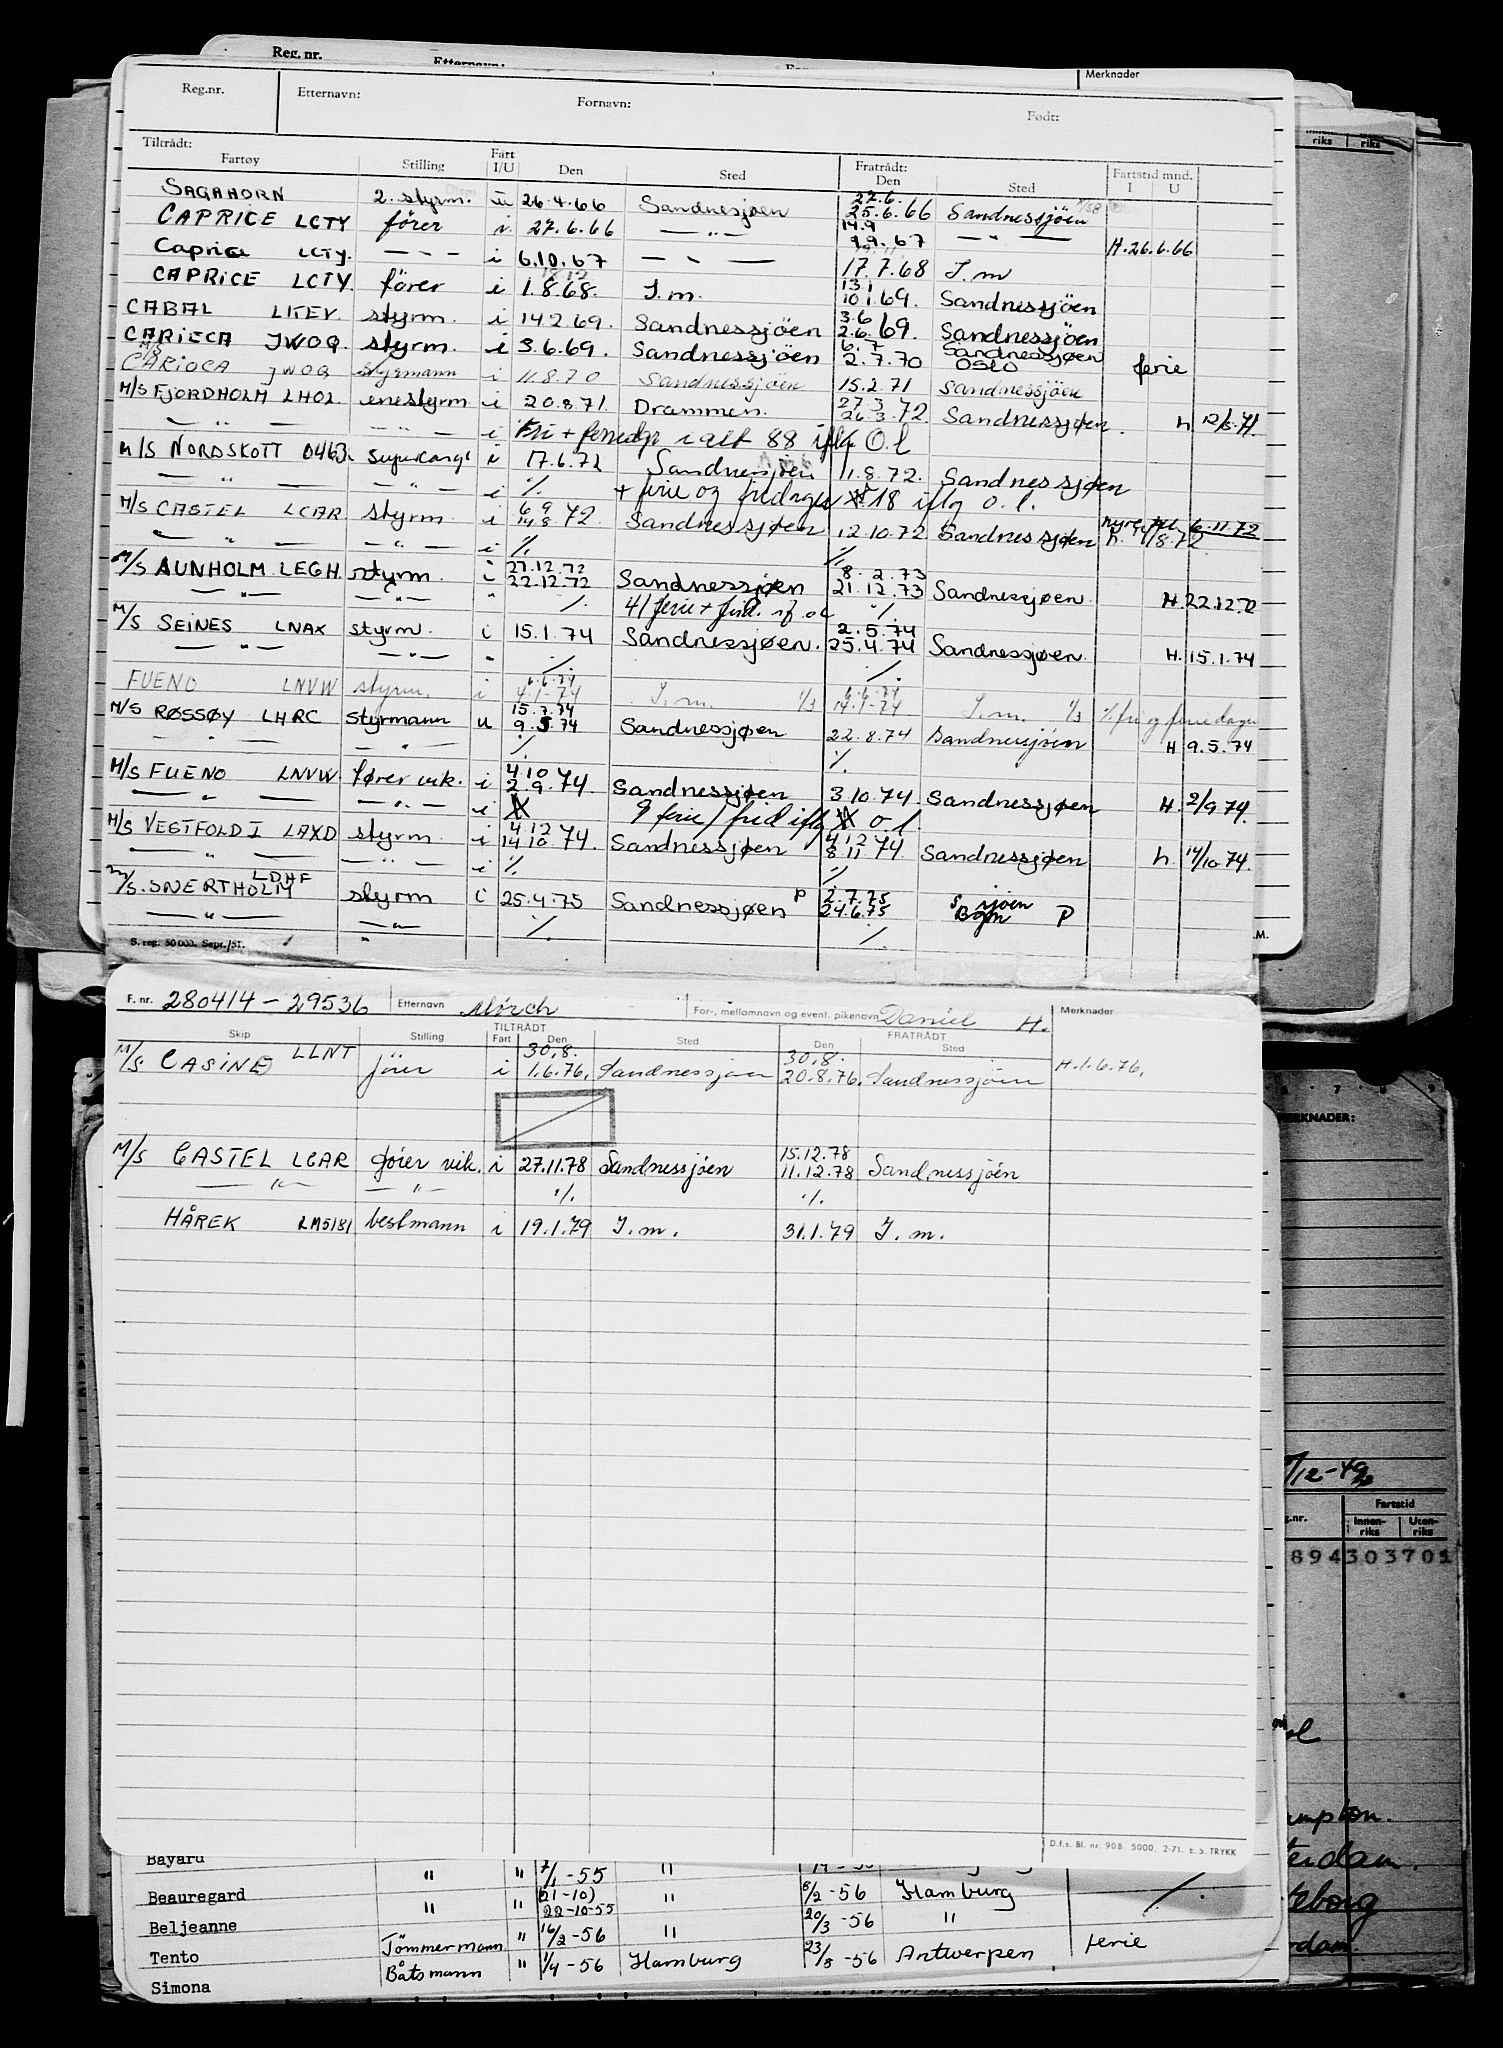 Reg. nr. Etternavn:
Merknader
Reg.nr. Etternavn: Fornavn: Født:
Tiltrådt: Fratrådt: Fartstid mnd.
Fartøy Stilling Fart I/U Den Sted Den Sted I U
SAGAHORN 2. styrm. u 26.4.66 Sandnesjøen 27.6. 25.6.66 Sandnessjöen
CAPRICE LCTY förer i 27.6.66 — " — 14.9 9.9.67 — " — H.26.6.66
Caprice LCTY. — " — i 6.10.67 — " — 17.7.68 I.m
CAPRICE LCTY. förer i 1.8.68. I.m. 13.1 10.1.69. Sandnessjöen
CABAL LKEV. styrm. i 14.2.69. Sandnessjöen 3.6 2.6.69. Sandnessjöen
CARIECA JWOQ. styrm. i 3.6.69. Sandnessjöen 6.7 2.7.70 Sandnessjøen OSLO ferie
M/S CARIOCA JWOQ styrmann i 11.8.70 Sandnessjöen 15.2.71 Sandnessjöen
M/S FJORDHOLM LHOL enestyrm i 20.8.71. Drammen. 27.3 26.3.72 Sandnessjøen. h 12/8.71.
— " — — " — i Fri + feriedgr i alt 88 iflg O.l
M/S NORDSKOTT 0463. supercargo i 17.6.72 Sandnessjøen 11.8.72. Sandnessjøen
— " — — " — i ./. + ferie og fridager 18 iflg o.l.
M/S CASTEL LCAR styrm. i 6.9 14.8 72. Sandnessjøen 12.10.72 Sandnessjøen hyre 6.11.72
— " — — " — i ./. ./. h. 14/8.72.
M/S AUNHOLM LEGH. styrm. i 27.12.72 22.12.72 Sandnessjøen 8.2.73 21.12.73 Sandnessjøen. H.22.12.72
— " — — " — " ./. 41 ferie + frid. if. ol ./.
M/S SEINES LNAX styrm. i 15.1.74 Sandnessjøen. 2.5.74 25.4.74 Sandnessjøen. H. 15.1.74
— " — — " — " ./. ./.
FUENO LNVW styrm. i 6.6.74 I.m. 1/3 6.6.74 I.m. 1/3 ./. fri og feriedager
M/S RØSSØY LHRC styrmann u 15.7.74 9.5.74 Sandnessjøen 22.8.74 Sandnessjöen H 9.5.74
— " — — " — ./. ./.
M/S FUENO LNVW. fører vik. i 4.10 2.9.74. Sandnessjøen 3.10.74. Sandnessjøen H. 2/9.74.
— " — — " — i 9 ferie/frid iflg o.l.
M/S VESTFOLD I LAXD styrm. i 4.12 14.10 74. Sandnessjøen 4.12 8.11 74. Sandnessjøen h. 14/10.74.
— " — — " — i ./. ./.
M/S. SNERTHOLM LDHF styrm i 25.4.75 Sandnessjøen P 2.7.75 24.6.75 S sjøen Bgn P
— " — — " — " ./. ./.
S. reg. 50 000. Sept./51.
F. nr. 280414 - 29536 Etternavn Mørch For-, mellomnavn og event. pikenavn Daniel H. Merknader
TILTRÅDT FRATRÅDT
Skip Stilling Fart Den Sted Den Sted
M/S CASINO LLNT förer i 30.8. 1.6.76. Sandnessjøen 30.8. 20.8.76. Sandnessjöen H.1.6.76.
M/S CASTEL LCAR förer vik. i 27.11.78 Sandnessjöen 15.12.78 11.12.78 Sandnessjöen
— " — — " — ./. ./.
HÅREK LM5181 bestmann i 19.1.79 I.m. 31.1.79 I.m.
D.f.s. Bl. nr. 90B. 5000. 2-71. E.S. TRYKK
Bayard " " 7/1 -55 "
Beauregard " " (21-10) 22-10-55 " 8/2 -56 Hamburg ./.
Beljeanne " 16/2 -56 " 20/3 -56 "
Tento Tömmermann " 1/4 -56 Hamburg 23/8 -56 Antwerpen ferie
Simona Båtsmann
MERKNADER:
Fartstid
Innenriks Utenriks
894303701